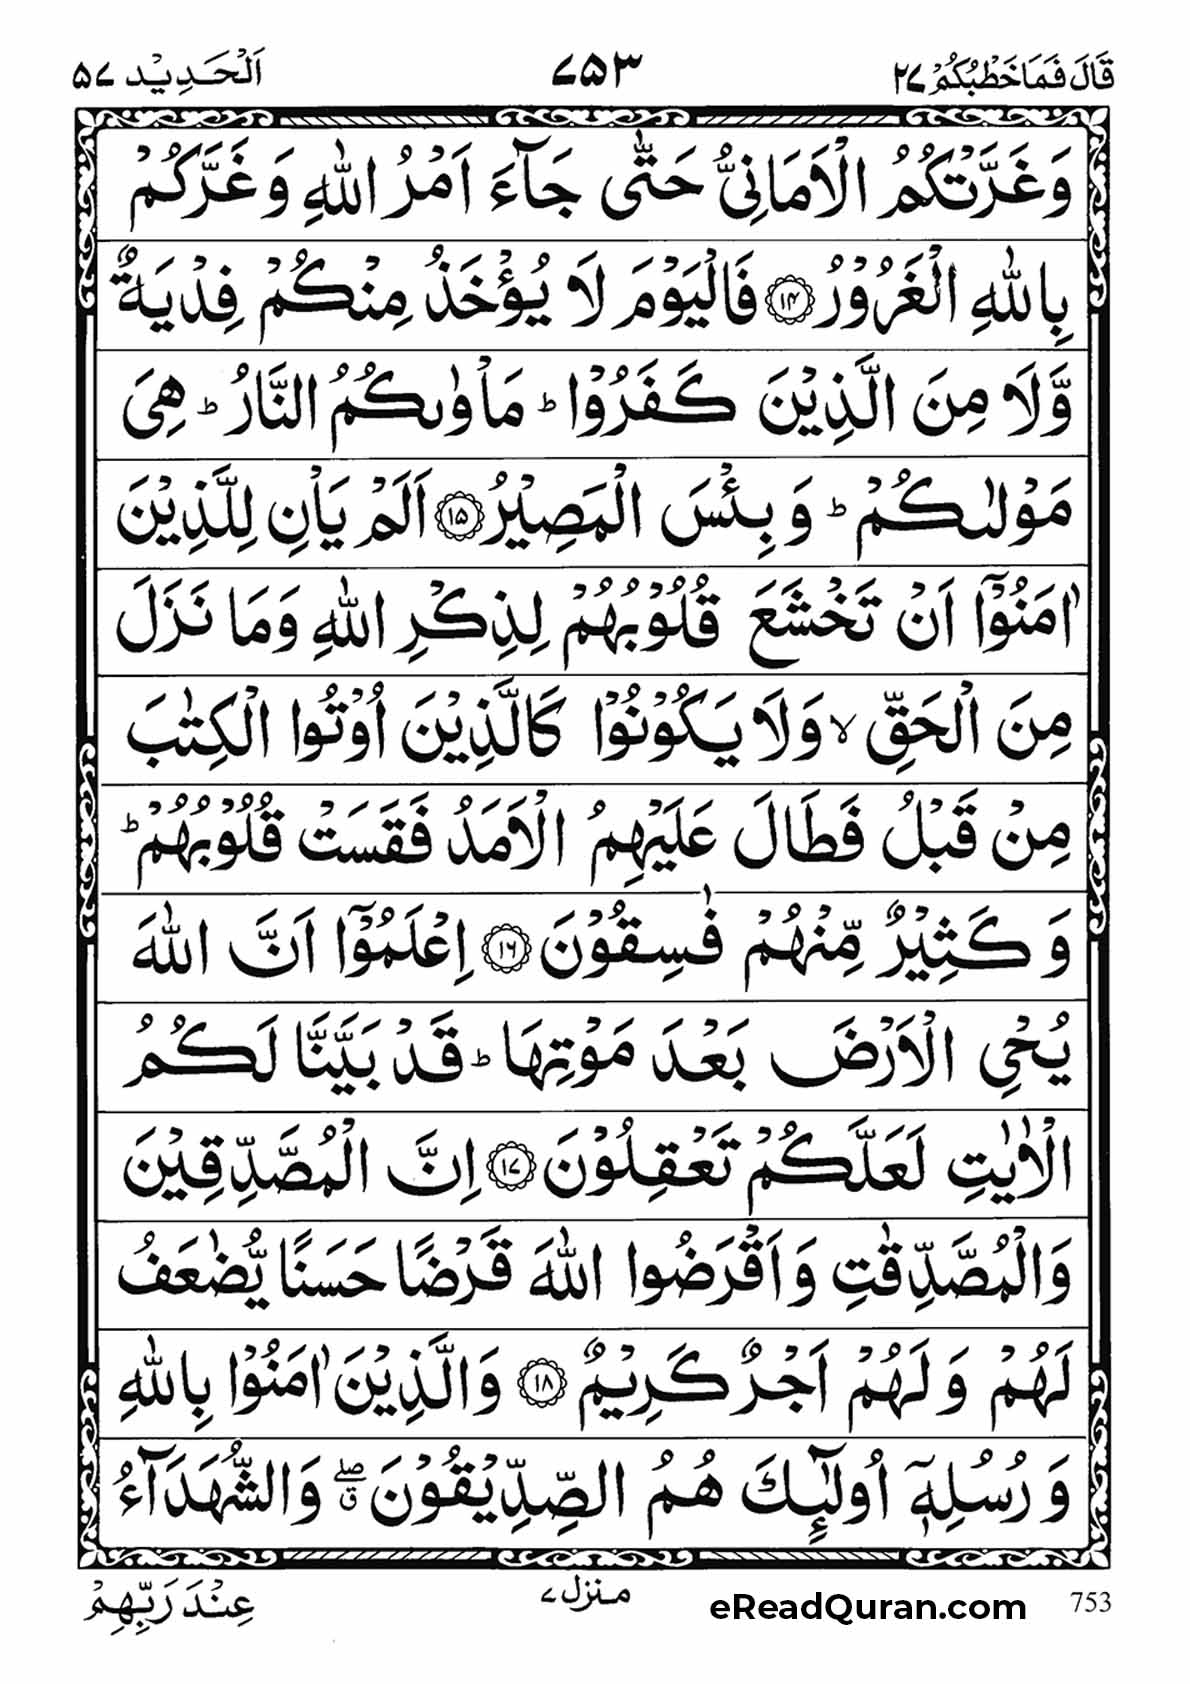 قَالَ فَمَا خَطْبُكُمْ ٢٧ ٧٥٣ اَلْحَدِيْد ٥٧
وَغَرَّتْكُمُ الْاَمَانِيُّ حَتّٰى جَآءَ اَمْرُ اللّٰهِ وَ غَرَّكُمْ
بِاللّٰهِ الْغَرُوْرُ ﴿۱۴﴾ فَالْيَوْمَ لَا يُؤْخَذُ مِنْكُمْ فِدْيَةٌ
وَّلَا مِنَ الَّذِيْنَ كَفَرُوْا ؕ مَاْوٰىكُمُ النَّارُ ؕ هِيَ
مَوْلٰىكُمْ ؕ وَ بِئْسَ الْمَصِيْرُ ﴿۱۵﴾ اَلَمْ يَاْنِ لِلَّذِيْنَ
اٰمَنُوْۤا اَنْ تَخْشَعَ قُلُوْبُهُمْ لِذِكْرِ اللّٰهِ وَمَا نَزَلَ
مِنَ الْحَقِّ ۙ وَلَا يَكُوْنُوْا كَالَّذِيْنَ اُوْتُوا الْكِتٰبَ
مِنْ قَبْلُ فَطَالَ عَلَيْهِمُ الْاَمَدُ فَقَسَتْ قُلُوْبُهُمْ ؕ
وَ كَثِيْرٌ مِّنْهُمْ فٰسِقُوْنَ ﴿۱۶﴾ اِعْلَمُوْۤا اَنَّ اللّٰهَ
يُحْيِ الْاَرْضَ بَعْدَ مَوْتِهَا ؕ قَدْ بَيَّنَّا لَكُمُ
الْاٰيٰتِ لَعَلَّكُمْ تَعْقِلُوْنَ ﴿۱۷﴾ اِنَّ الْمُصَّدِّقِيْنَ
وَالْمُصَّدِّقٰتِ وَاَقْرَضُوا اللّٰهَ قَرْضًا حَسَنًا يُّضٰعَفُ
لَهُمْ وَ لَهُمْ اَجْرٌ كَرِيْمٌ ﴿۱۸﴾ وَالَّذِيْنَ اٰمَنُوْا بِاللّٰهِ
وَ رُسُلِهٖۤ اُولٰٓئِكَ هُمُ الصِّدِّيْقُوْنَ ۖق وَالشُّهَدَآءُ
عِنْدَ رَبِّهِمْ منزل ٧ eReadQuran.com 753